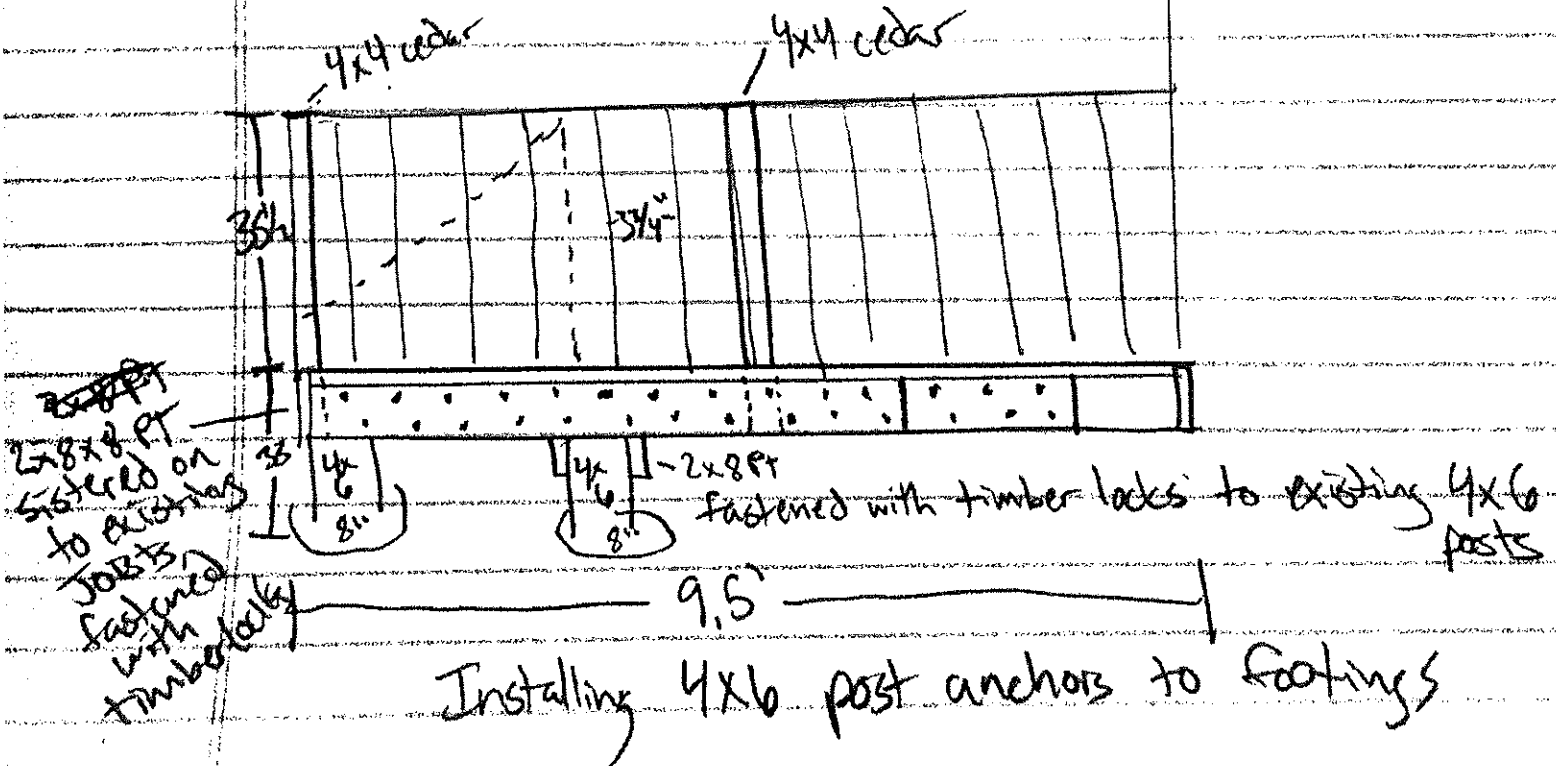 4x4 cedar
4x4 cedar
36h
3 3/4"
2x8 PT
2x8x8 PT
sistered on
to existing
JOISTS
fastened
with
timberlocks
38
4x
6
8"
4x
6
8"
2x8 PT
fastened with timber locks to existing 4x6
posts
9,5'
Installing 4x6 post anchors to footings